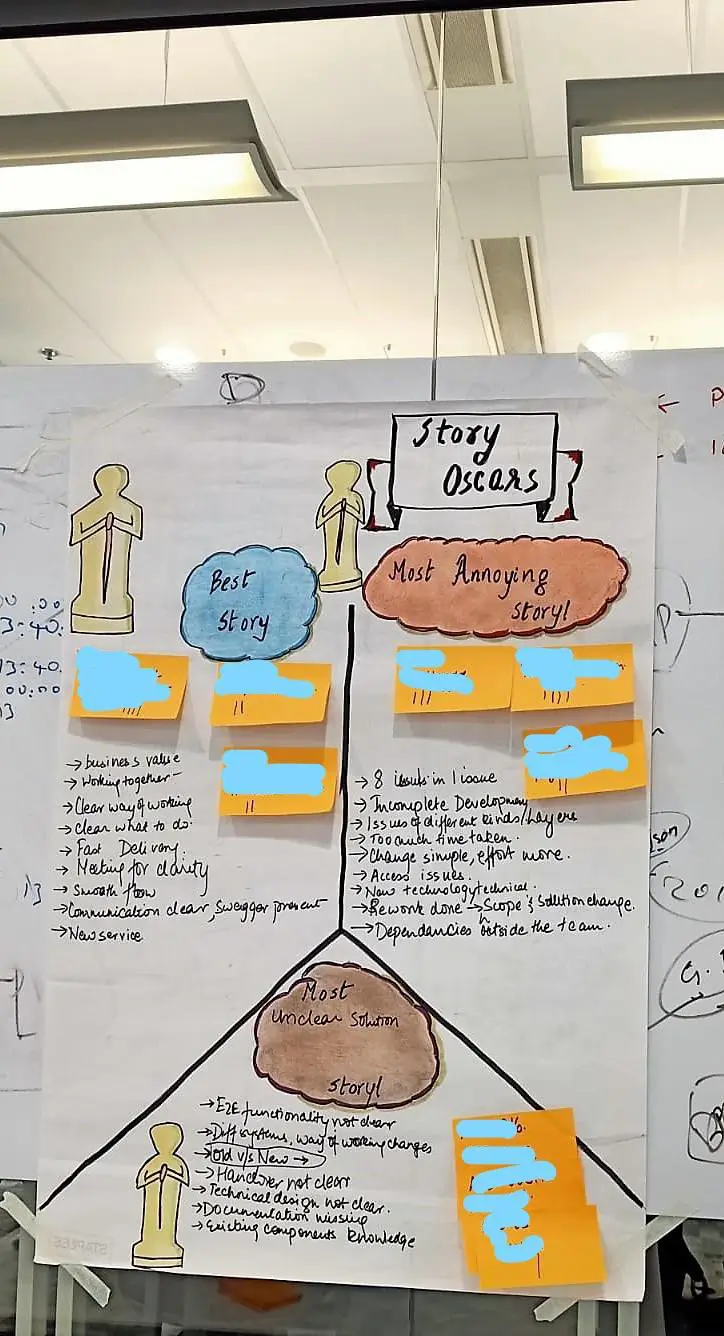 Story
Oscars
Best
Story
Most Annoying
Story!
→ business value
→ Working together
→ Clear way of working
→ Clear what to do.
→ Fast Delivery.
→ Meeting for clarity
→ Smooth flow
→ Communication clear, Swagger present
→ New service
→ 8 issues in 1 issue
→ Incomplete Development
→ Issues of different kinds/Layers
→ Too much time taken.
→ Change simple, effort more.
→ Access issues.
→ New technology technical.
→ Rework done → Scope & Solution change.
→ Dependancies outside the team.
Most
Unclear Solution
Story!
→ E2E functionality not clear
→ Diff systems, way of working changes
→ Old v/s New →
→ Handover not clear
→ Technical design not clear.
→ Documentation missing
→ Existing components knowledge
STAPLES